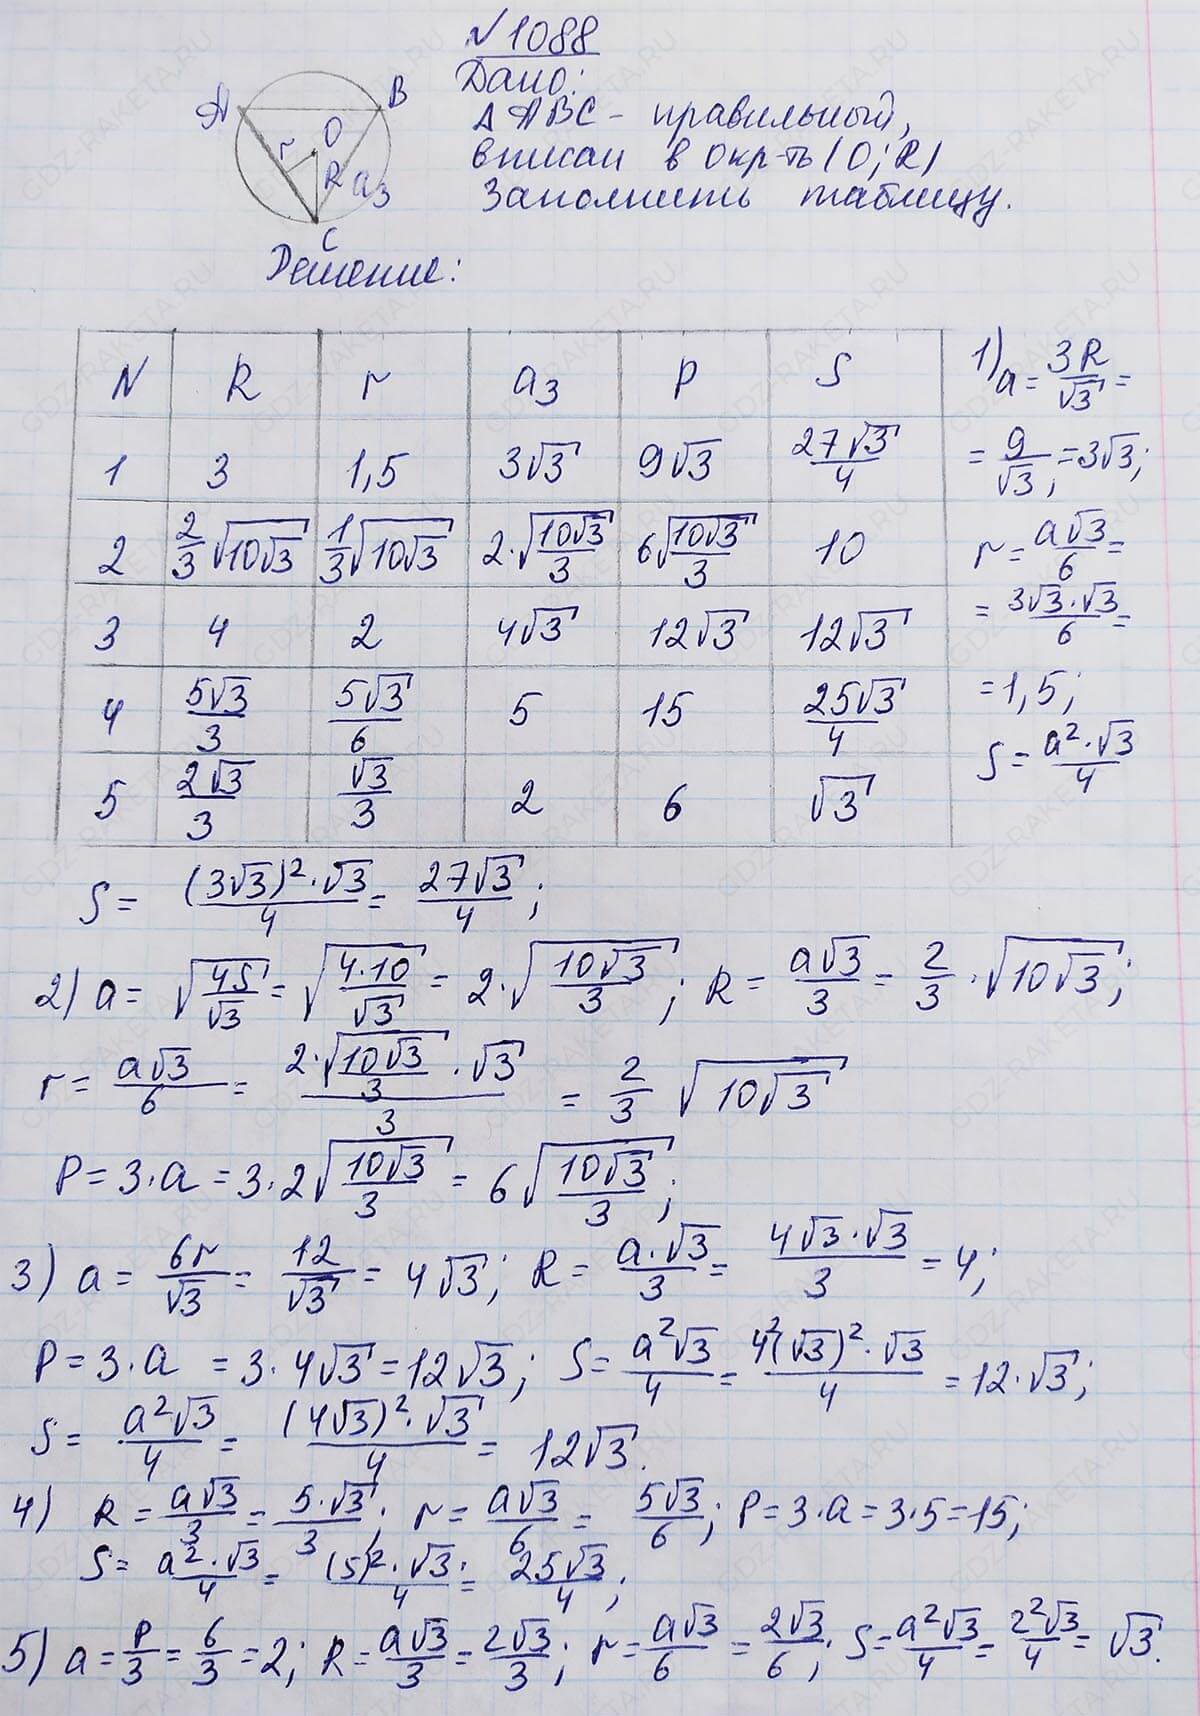 №1088
Дано:
A B O r R a₃ C
△ABC - правильный,
вписан в окр-ть (O; R)
Заполнить таблицу.
Решение:
N R r a₃ P S
1 3 1,5 3√3 9√3 27√3/4
2 2/3 √(10√3) 1/3 √(10√3) 2·√(10√3/3) 6√(10√3/3) 10
3 4 2 4√3 12√3 12√3
4 5√3/3 5√3/6 5 15 25√3/4
5 2√3/3 √3/3 2 6 √3
1) a = 3R/√3 =
= 9/√3; = 3√3;
r = a√3/6 =
= 3√3·√3/6 =
= 1,5;
S = a²·√3/4
S = (3√3)²·√3/4 = 27√3/4;
2) a = √(4S/√3) = √(4·10/√3) = 2·√(10√3/3); R = a√3/3 = 2/3·√(10√3);
r = a√3/6 = 2·√(10√3/3)·√3/3 = 2/3 √(10√3)
P = 3·a = 3·2√(10√3/3) = 6√(10√3/3);
3) a = 6r/√3 = 12/√3 = 4√3; R = a·√3/3 = 4√3·√3/3 = 4;
P = 3·a = 3·4√3 = 12√3; S = a²√3/4 = 4²(√3)²·√3/4 = 12·√3;
S = a²√3/4 = (4√3)²·√3/4 = 12√3.
4) R = a√3/3 = 5·√3/3; r = a√3/6 = 5√3/6; P = 3·a = 3·5 = 15;
S = a²·√3/4 = (5)²·√3/4 = 25√3/4;
5) a = P/3 = 6/3 = 2; R = a√3/3 = 2√3/3; r = a√3/6 = 2√3/6; S = a²√3/4 = 2²√3/4 = √3.
GDZ-RAKETA.RU